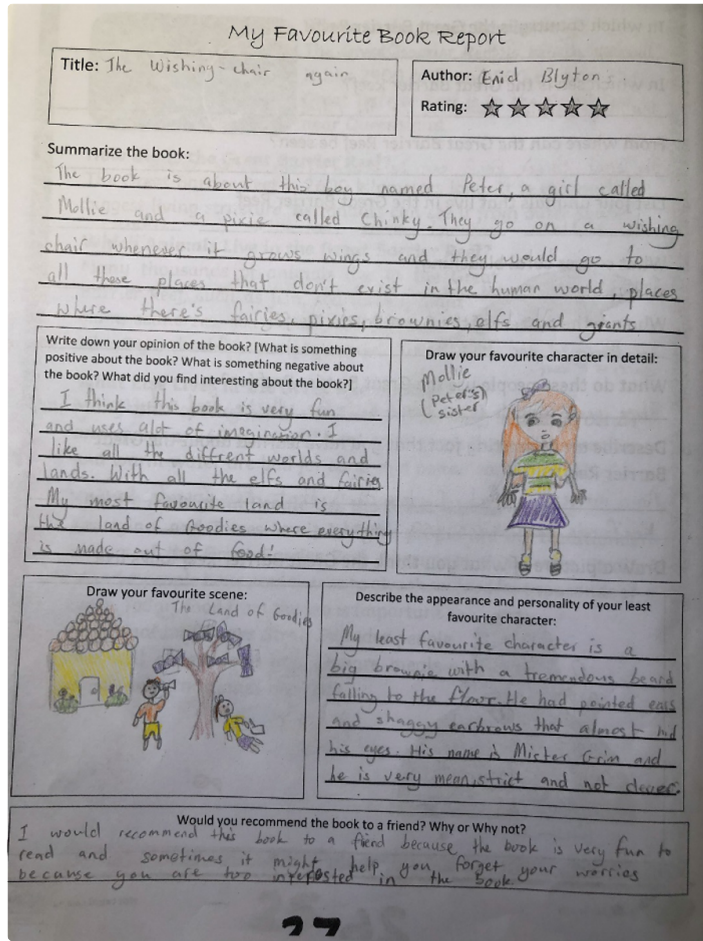 My Favourite Book Report
Title: The Wishing-chair again
Author: Enid Blyton.
Rating:
Summarize the book:
The book is about this boy named Peter, a girl called
Mollie and a pixie called Chinky. They go on a wishing
chair whenever it grows wings and they would go to
all these places that don't exist in the human world, places
where there's fairies, pixies, brownies, elfs and giants
Write down your opinion of the book? [What is something
positive about the book? What is something negative about
the book? What did you find interesting about the book?]
I think this book is very fun
and uses alot of imagination. I
like all the diffrent worlds and
lands. With all the elfs and fairies
My most favourite land is
the land of Goodies where everything
is made out of food!
Draw your favourite character in detail:
Mollie
(Peter's
sister)
Draw your favourite scene:
The Land of Goodies
Describe the appearance and personality of your least
favourite character:
My least favourite character is a
big brownie with a tremendous beard
falling to the floor. He had pointed ears
and shaggy earbrows that almost hid
his eyes. His name is Mister Grim and
he is very mean, strict and not clever.
Would you recommend the book to a friend? Why or Why not?
I would recommend this book to a fiend because the book is very fun to
read and sometimes it might help you forget your worries
because you are too interested in the book.